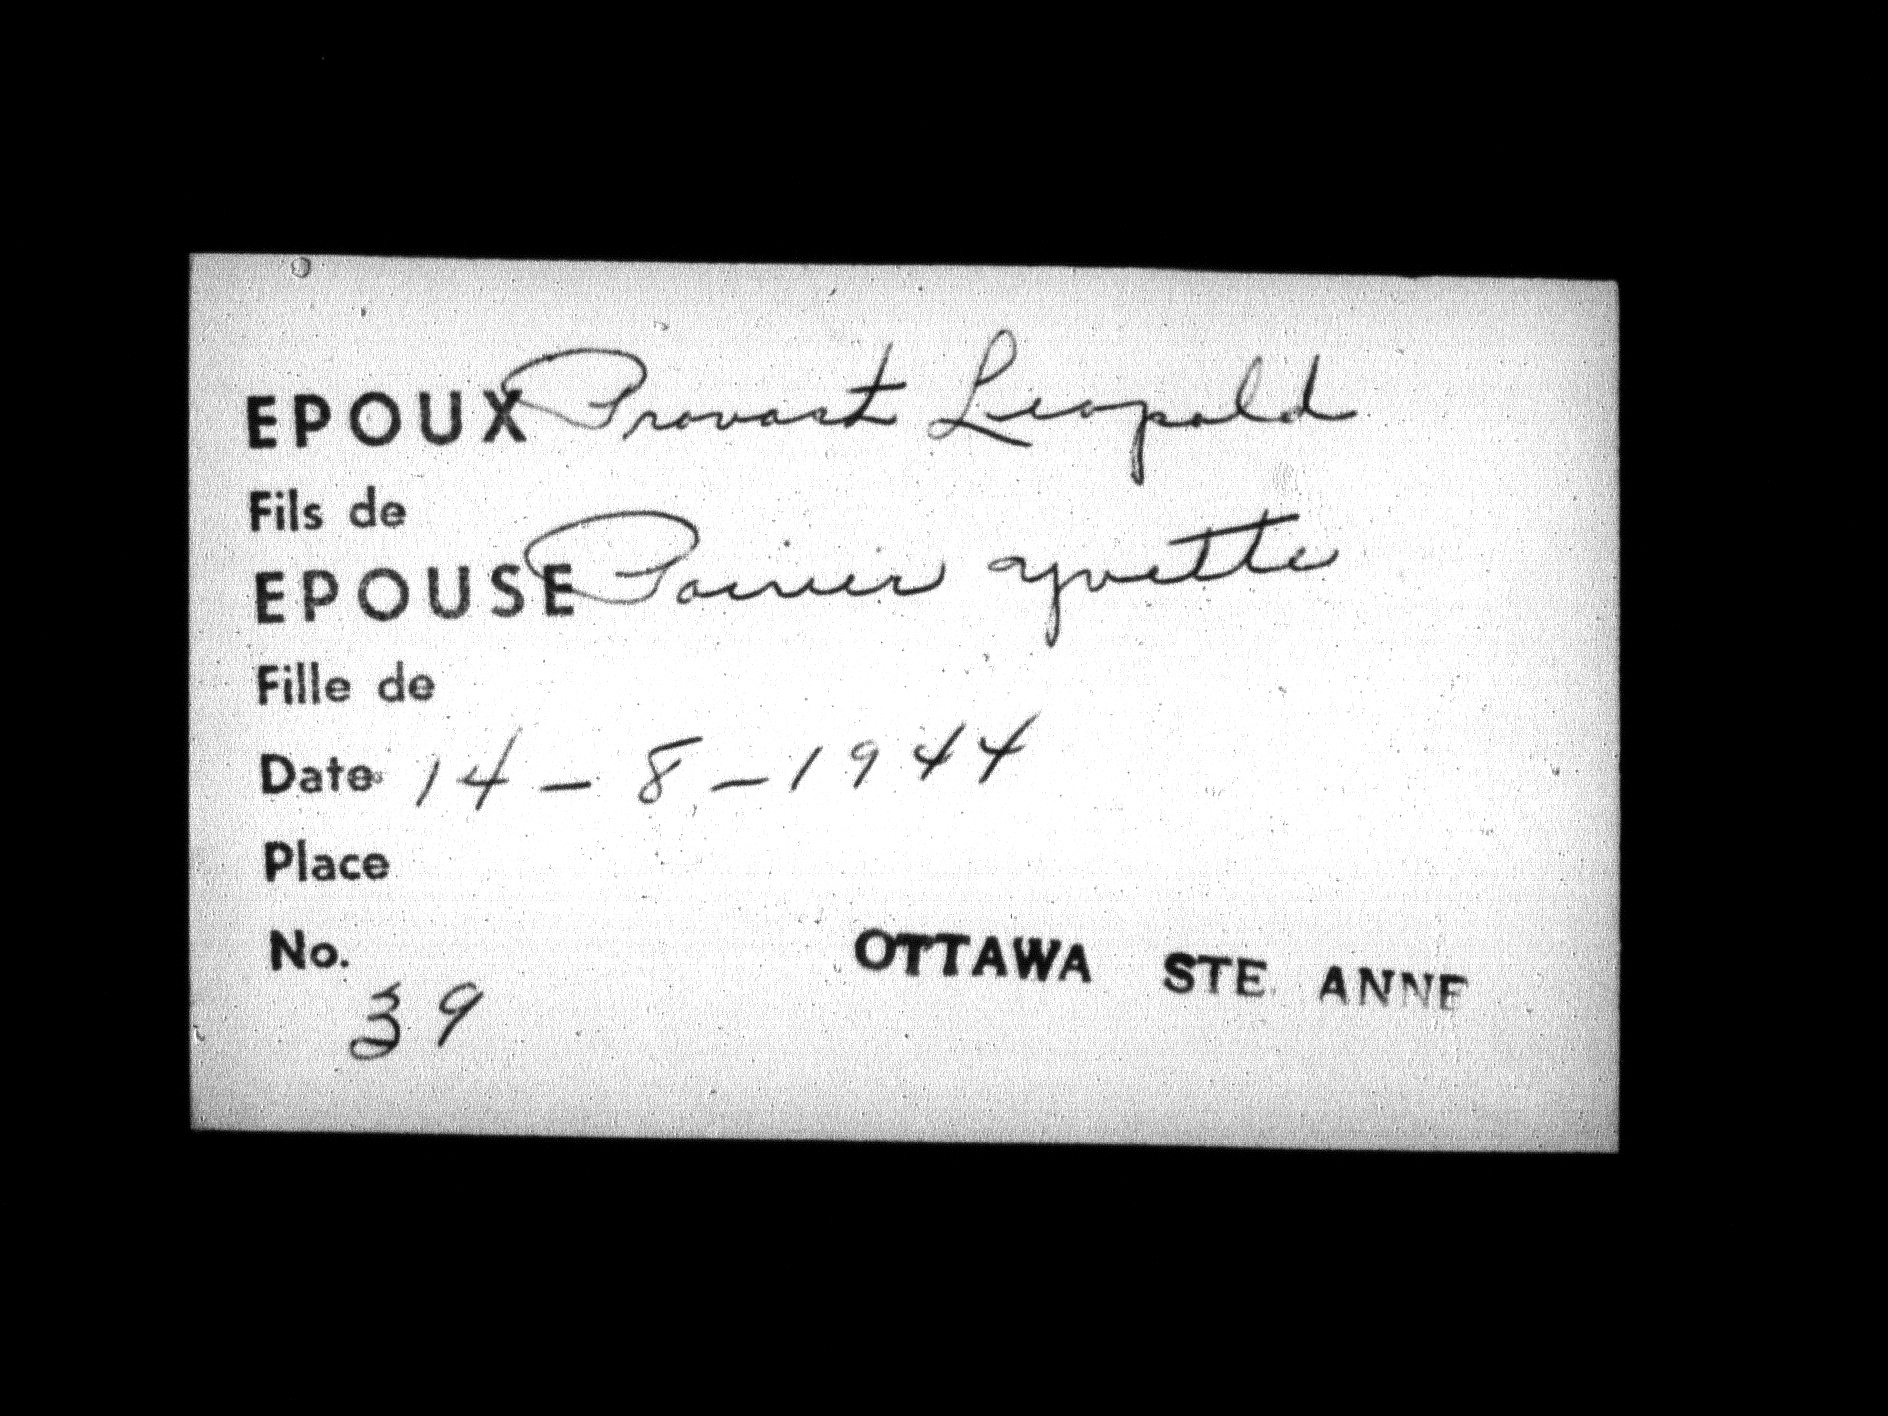 EPOUX Provost Leopold
Fils de
EPOUSE Poirier Yvette
Fille de
Date 14-8-1944
Place
No. OTTAWA STE. ANNE
39